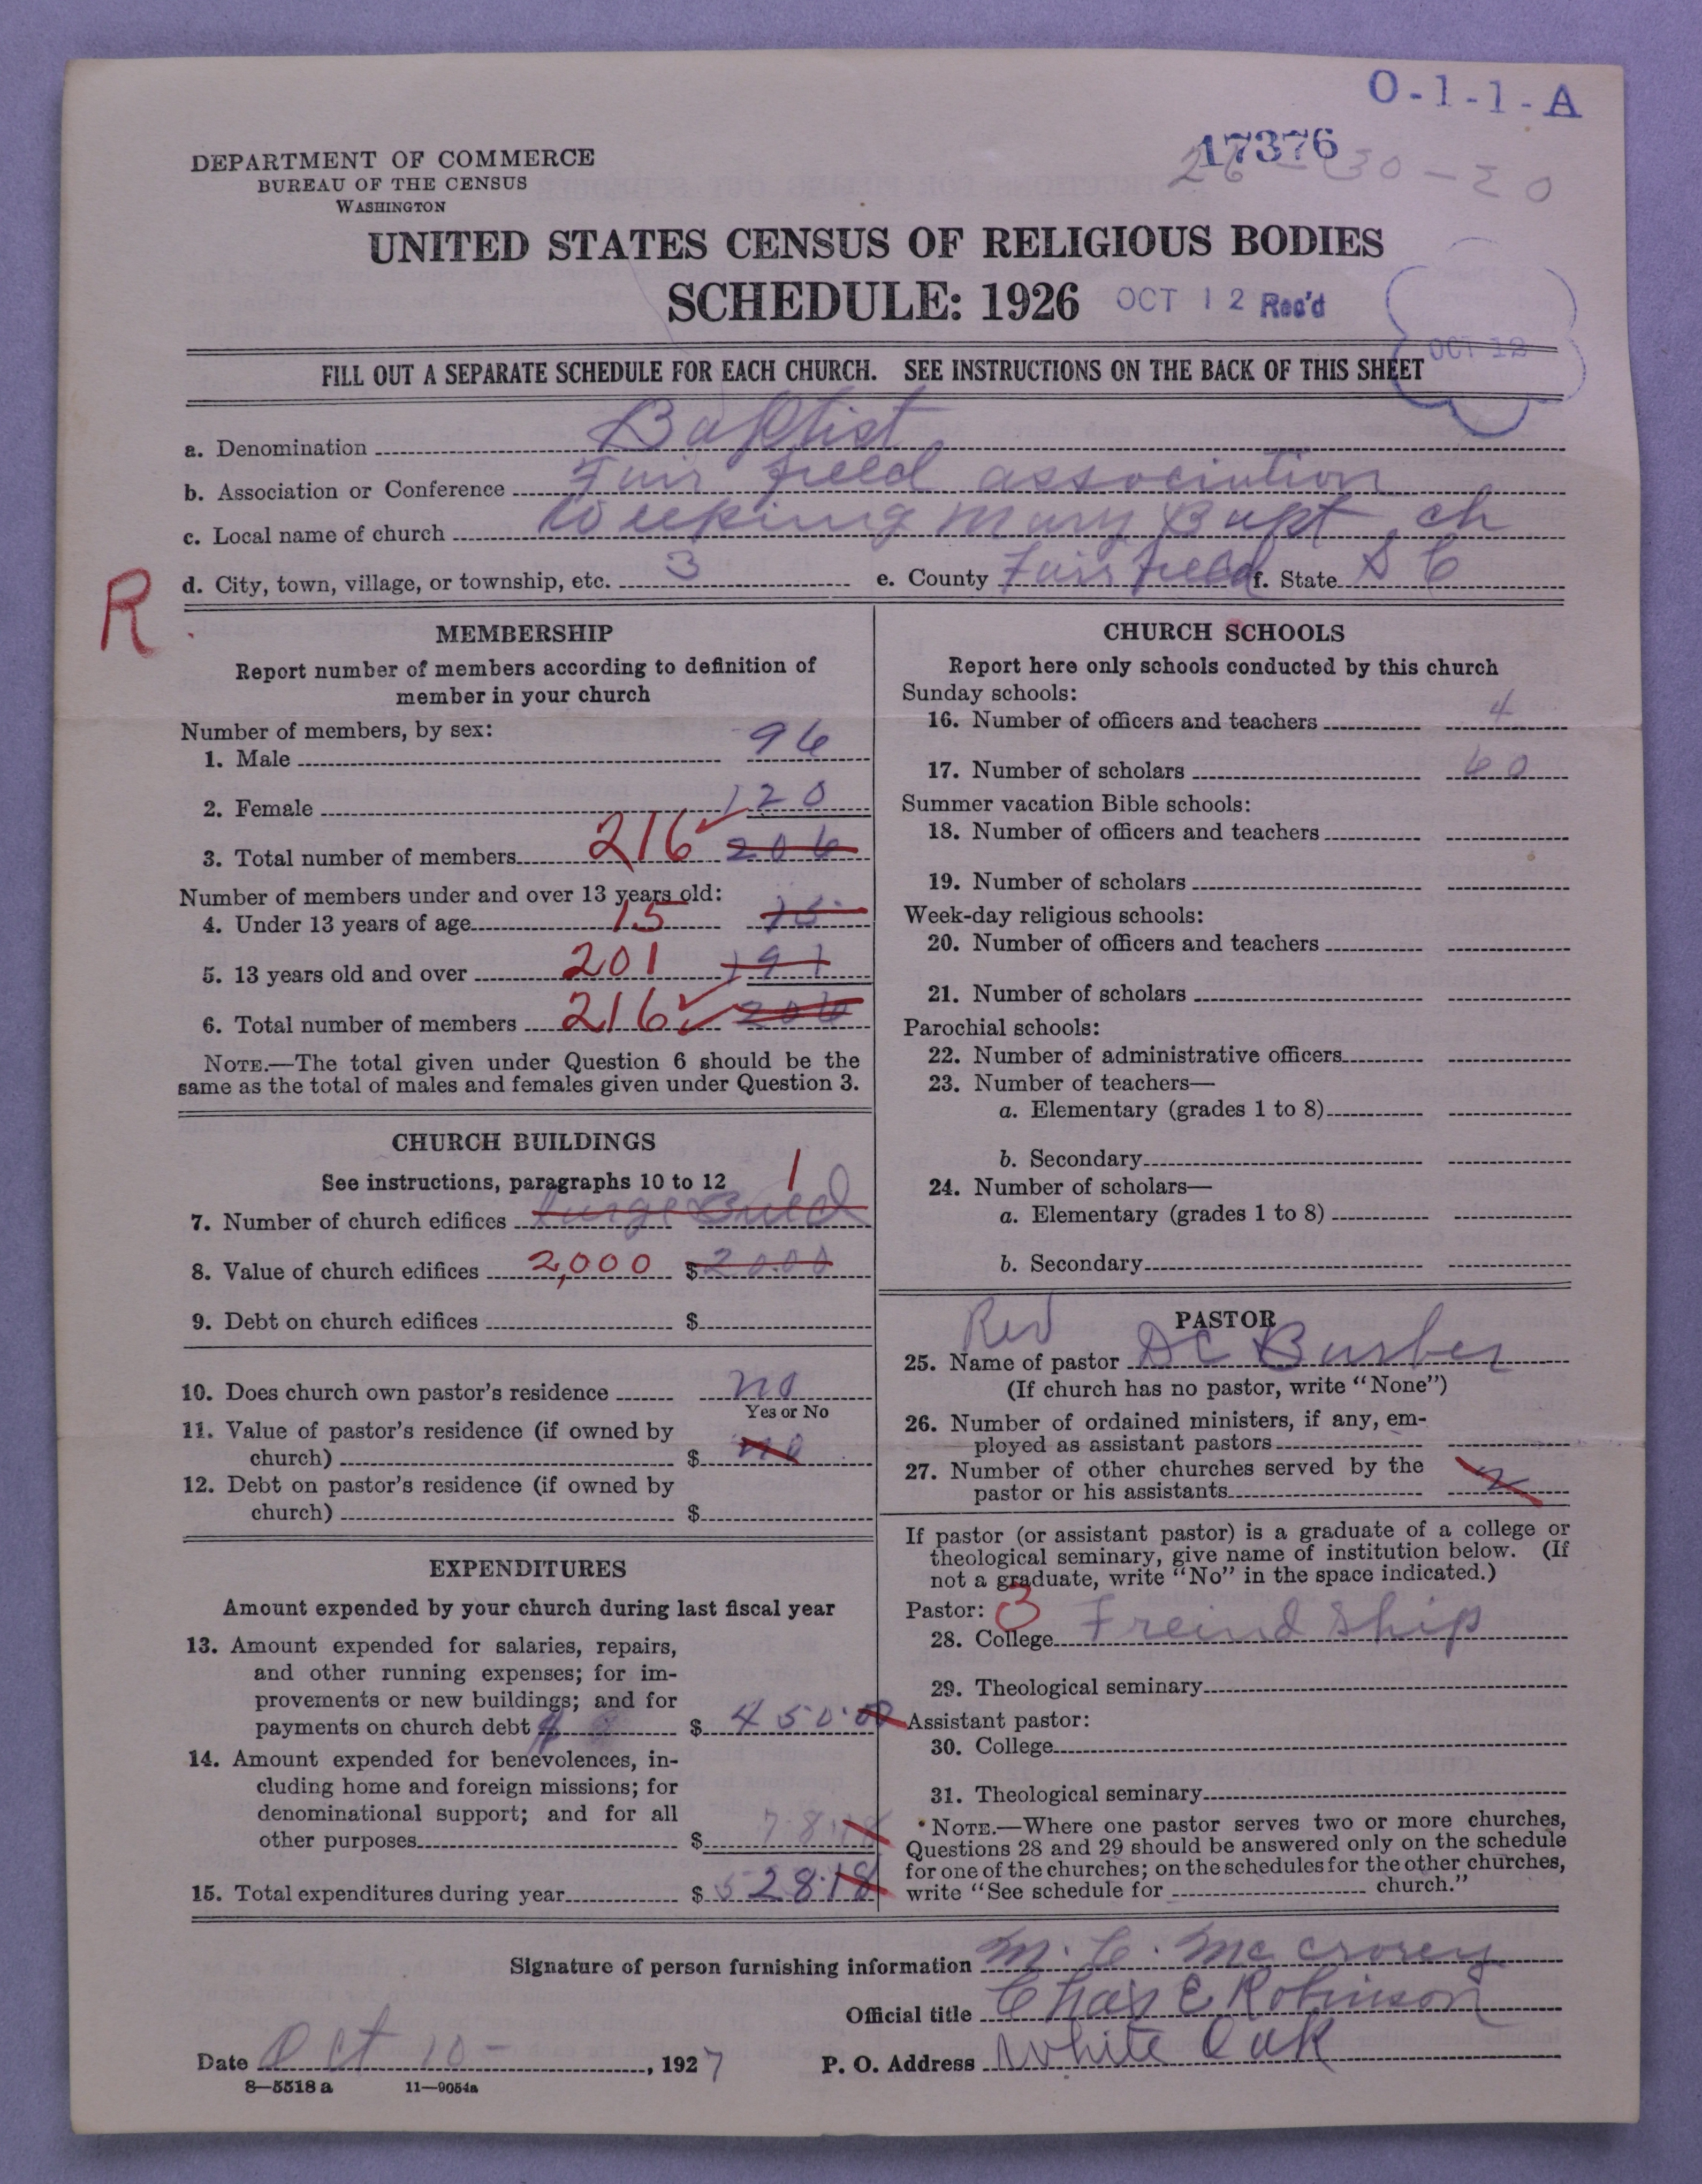 O-1-1-A
17376
26-30-20
DEPARTMENT OF COMMERCE
BUREAU OF THE CENSUS
WASHINGTON
UNITED STATES CENSUS OF RELIGIOUS BODIES
SCHEDULE: 1926 OCT 12 Rec'd
OCT 12
FILL OUT A SEPARATE SCHEDULE FOR EACH CHURCH. SEE INSTRUCTIONS ON THE BACK OF THIS SHEET
a. Denomination Baptist
b. Association or Conference Fair field association
c. Local name of church Weeking Mary Bapt ch
d. City, town, village, or township, etc. 3 e. County Fairfield f. State S C
R
MEMBERSHIP
Report number of members according to definition of
member in your church
Number of members, by sex:
1. Male 96
2. Female 120
3. Total number of members 216 206
Number of members under and over 13 years old:
4. Under 13 years of age 15 15
5. 13 years old and over 201 191
6. Total number of members 216 206
NOTE.—The total given under Question 6 should be the
same as the total of males and females given under Question 3.
CHURCH BUILDINGS
See instructions, paragraphs 10 to 12 1
7. Number of church edifices large Build
8. Value of church edifices 2,000 $ 2000
9. Debt on church edifices $
10. Does church own pastor's residence no
Yes or No
11. Value of pastor's residence (if owned by
church) $ no
12. Debt on pastor's residence (if owned by
church) $
EXPENDITURES
Amount expended by your church during last fiscal year
13. Amount expended for salaries, repairs,
and other running expenses; for im-
provements or new buildings; and for
payments on church debt $ 450.00
14. Amount expended for benevolences, in-
cluding home and foreign missions; for
denominational support; and for all
other purposes $ 78.18
15. Total expenditures during year $ 528.18
CHURCH SCHOOLS
Report here only schools conducted by this church
Sunday schools:
16. Number of officers and teachers 4
17. Number of scholars 60
Summer vacation Bible schools:
18. Number of officers and teachers
19. Number of scholars
Week-day religious schools:
20. Number of officers and teachers
21. Number of scholars
Parochial schools:
22. Number of administrative officers
23. Number of teachers—
a. Elementary (grades 1 to 8)
b. Secondary
24. Number of scholars—
a. Elementary (grades 1 to 8)
b. Secondary
PASTOR
25. Name of pastor Rev D C Barber
(If church has no pastor, write "None")
26. Number of ordained ministers, if any, em-
ployed as assistant pastors
27. Number of other churches served by the
pastor or his assistants 2
If pastor (or assistant pastor) is a graduate of a college or
theological seminary, give name of institution below. (If
not a graduate, write "No" in the space indicated.)
Pastor: 3
28. College Freind Ship
29. Theological seminary
Assistant pastor:
30. College
31. Theological seminary
NOTE.—Where one pastor serves two or more churches,
Questions 28 and 29 should be answered only on the schedule
for one of the churches; on the schedules for the other churches,
write "See schedule for church."
Signature of person furnishing information M. C. Mc Crorey
Official title Chas E Robinson
Date Oct 10 - , 1927 P. O. Address White Oak
8—5518 a 11—9054a